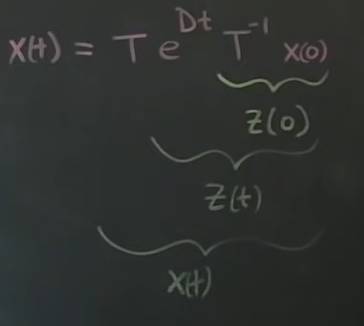 X(t) = T e^{Dt} T^{-1} x(0)
Z(0)
Z(t)
X(t)